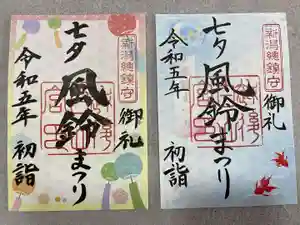 新潟総鎮守
七夕
風鈴まつり
御礼
令和五年
初詣
新潟総鎮守
七夕
風鈴まつり
御礼
令和五年
初詣